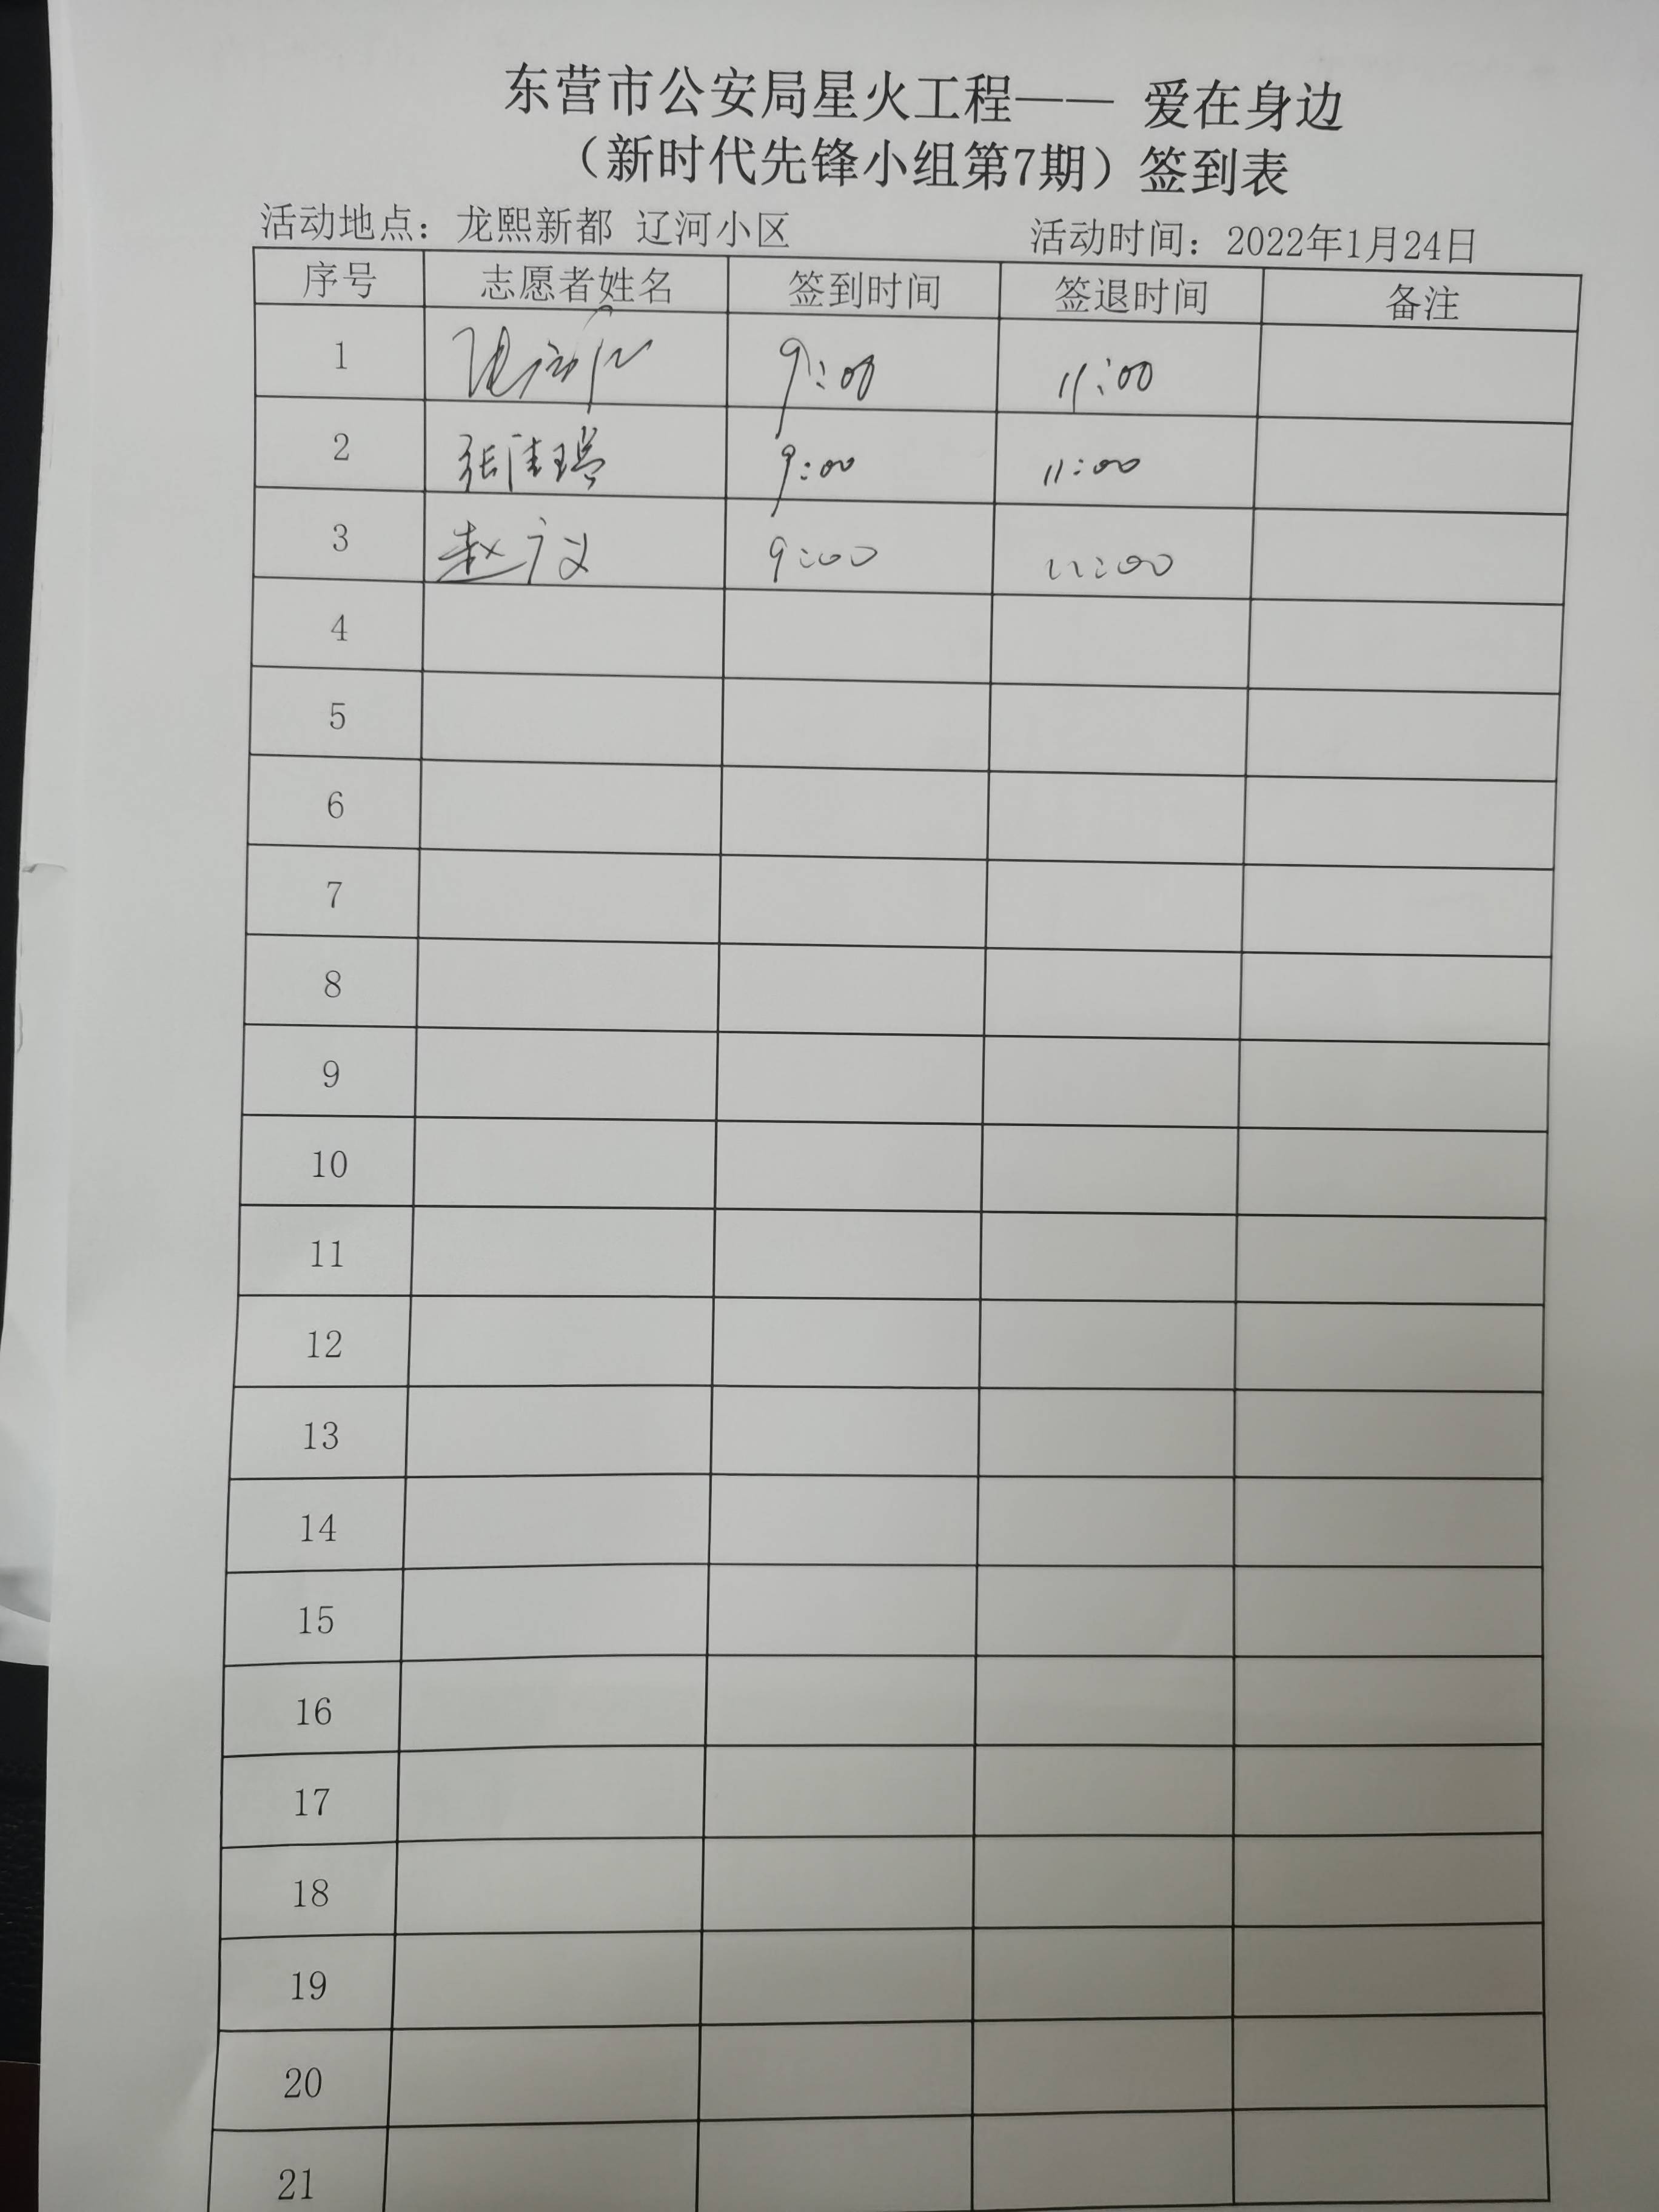 东营市公安局星火工程—— 爱在身边
（新时代先锋小组第7期）签到表
活动地点：龙熙新都 辽河小区 活动时间：2022年1月24日
序号 志愿者姓名 签到时间 签退时间 备注
1 9:00 11:00
2 张佳瑞 9:00 11:00
3 赵广义 9:00 11:00
4
5
6
7
8
9
10
11
12
13
14
15
16
17
18
19
20
21